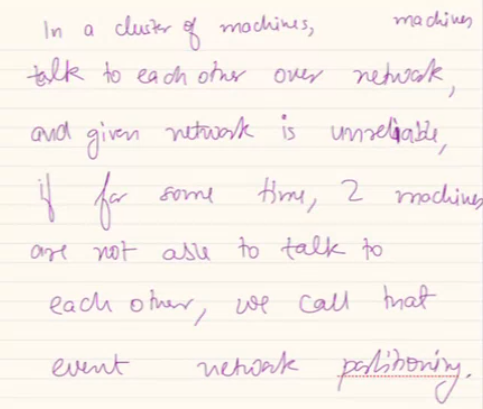 In a cluster of machines, machines
talk to each other over network,
and given network is unreliable,
if for some time, 2 machines
are not able to talk to
each other, we call that
event network partitioning.